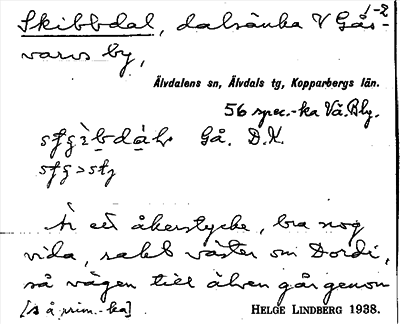 1-2
Skibbdal, dalsänka V Gås-
varvs by,
Älvdalens sn, Älvdals tg, Kopparbergs län.
56 spec.-ka Vä. Bly.
Gå. D.K.
Är ett åkerstycke, bra nog
vida, rakt väster om Dordi,
så vägen till älven går genom
[s å prim.-ka] HELGE LINDBERG 1938.